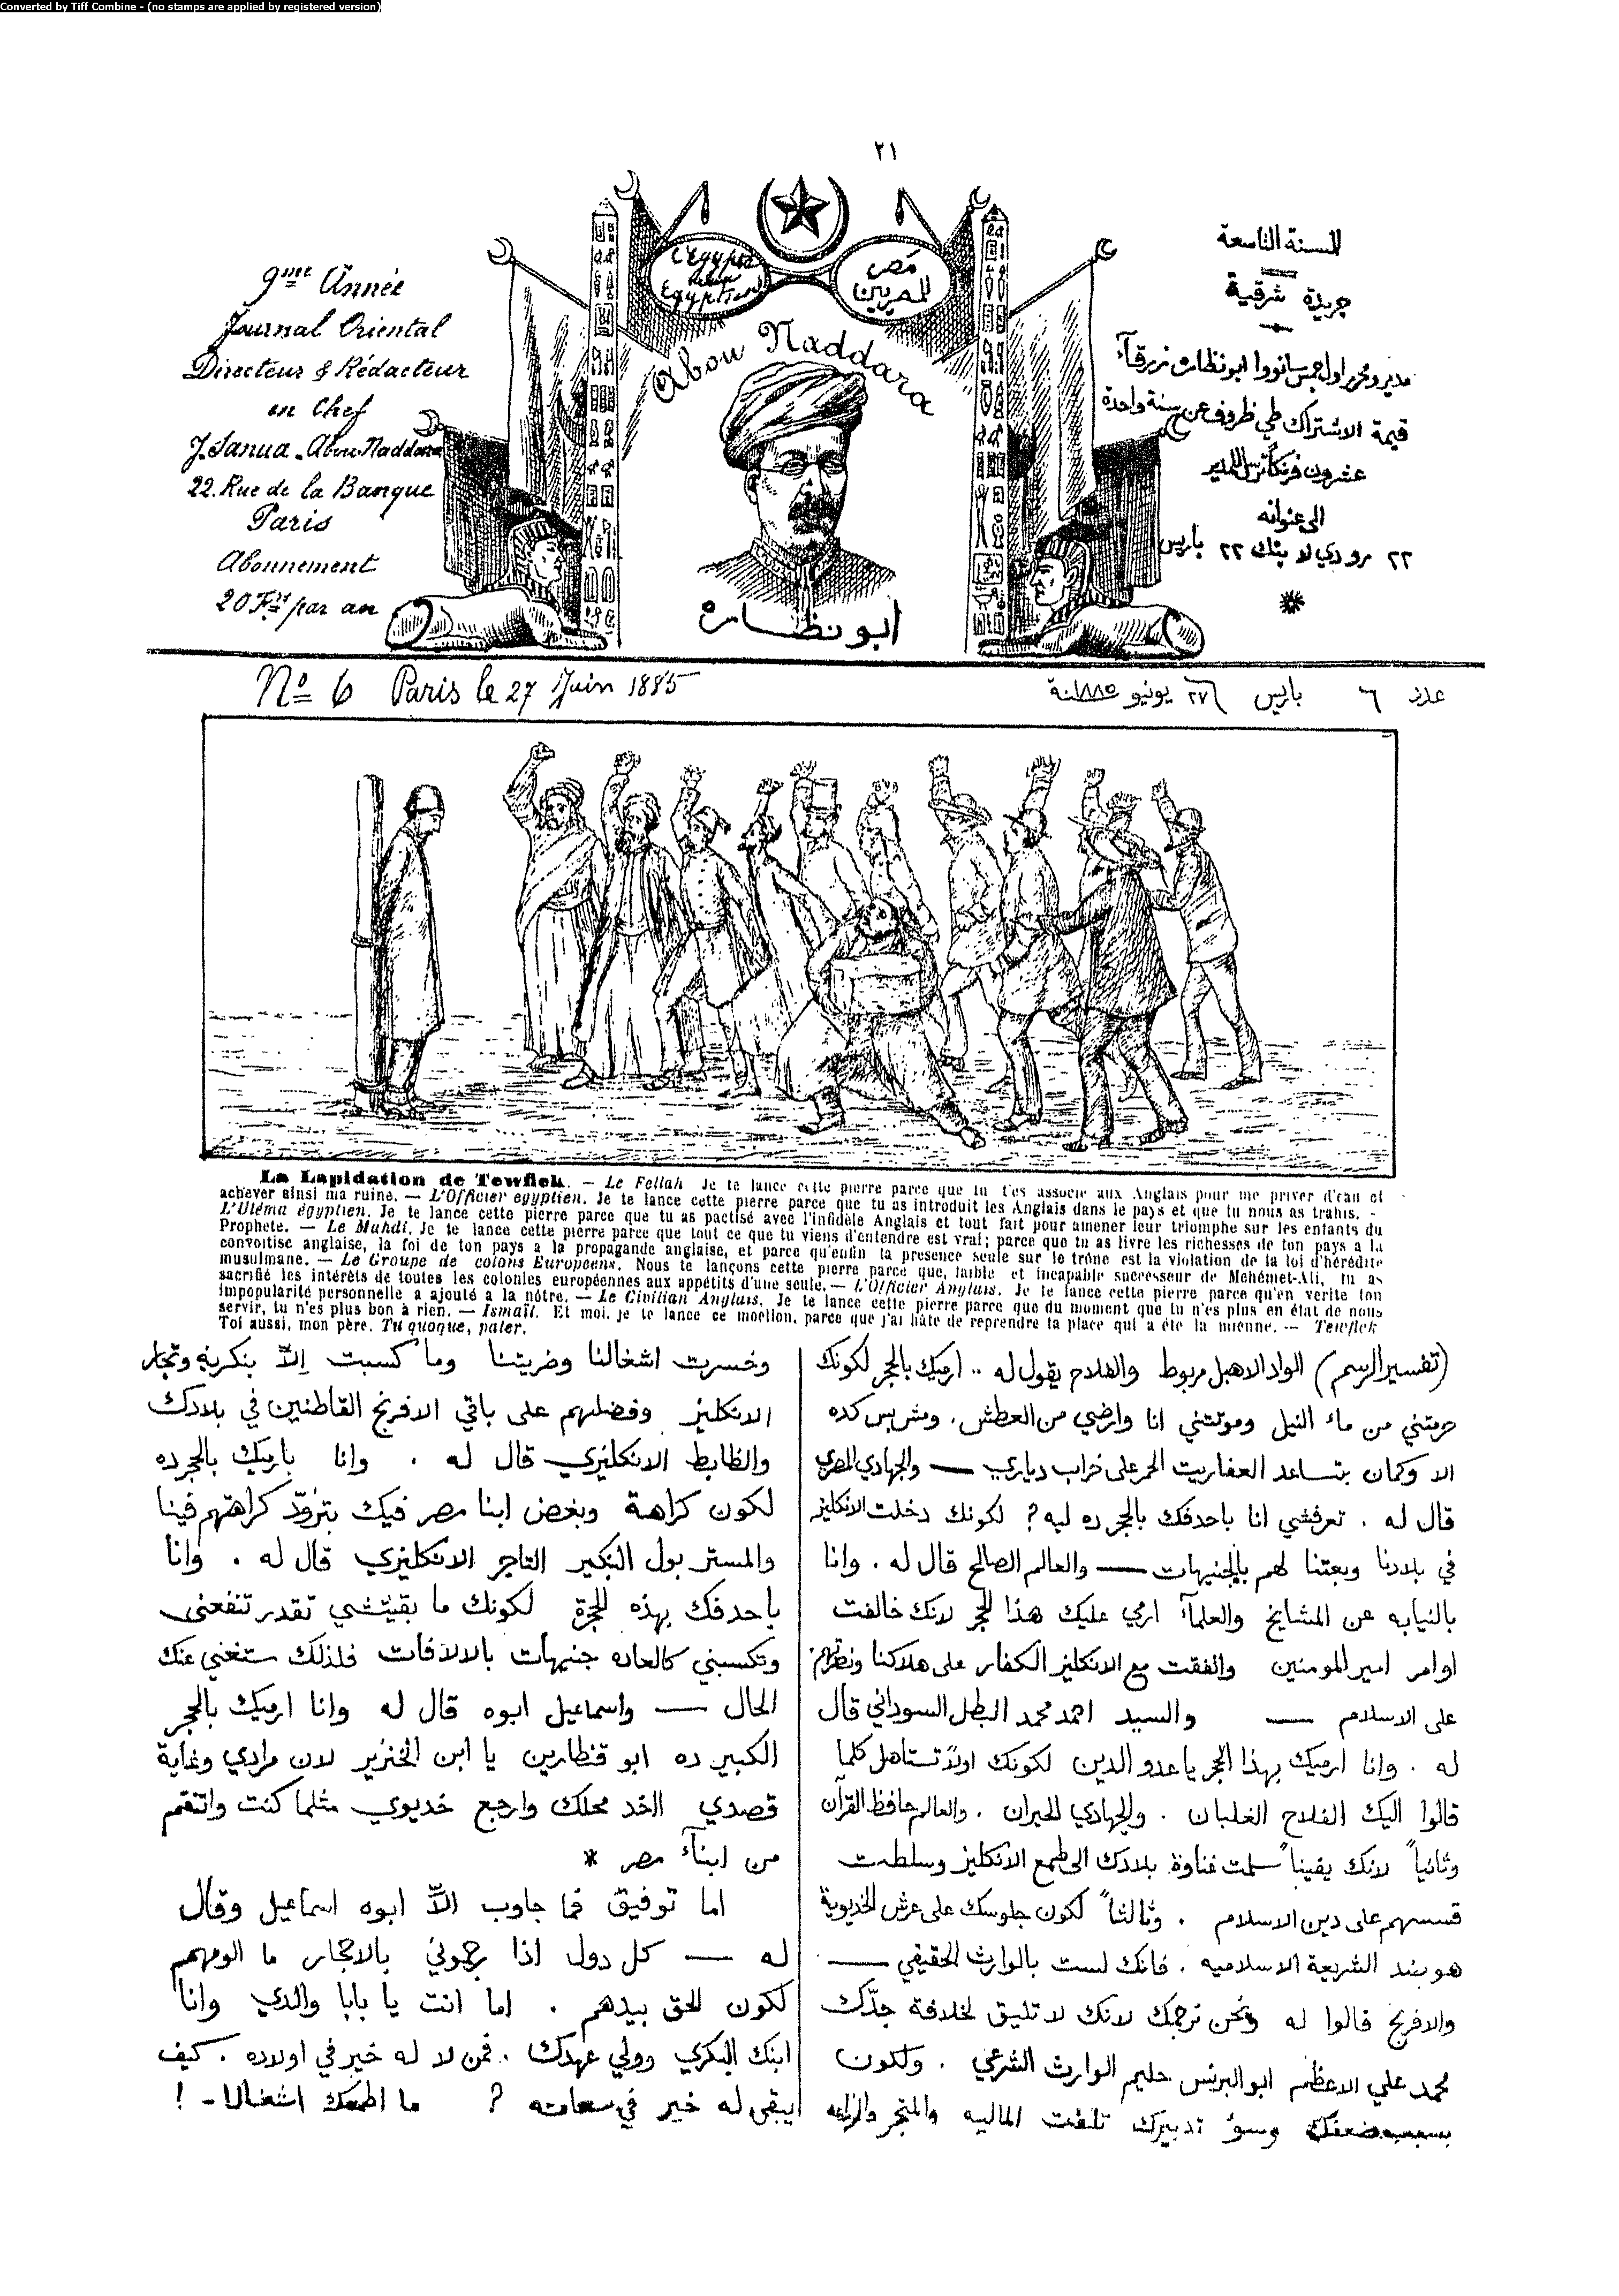 Converted by Tiff Combine - (no stamps are applied by registered version)
٢١
9me Année
Journal Oriental
Directeur & Rédacteur
en Chef
J. Sanua. Abou Naddara
22. Rue de la Banque
Paris
Abonnement
20 Frs par an
L'Egypte
aux
Egyptiens
مصر
للمصريين
Abou Naddara
ابو نظاره
للسنة التاسعة
جريدة شرقية
مدير ومحرر اول جمس سانووا ابو نظارت زرقآء
قيمة الاشتراك طي ظروف عن سنة واحدة
عشرون فرنكا ترسل للمدير
الى عنوانه
٢٢ رو دي لا بنك ٢٢ باريس
No 6 Paris le 27 Juin 1885
عدد ٦ باريس ٢٧ يونيو سنة ١٨٨٥
La Lapidation de Tewfick. — Le Fellah Je te lance cette pierre parce que tu t'es associé aux Anglais pour me priver d'eau et
achever ainsi ma ruine. — L'Officier égyptien. Je te lance cette pierre parce que tu as introduit les Anglais dans le pays et que tu nous as trahis. -
L'Uléma égyptien. Je te lance cette pierre parce que tu as pactisé avec l'infidèle Anglais et tout fait pour amener leur triomphe sur les enfants du
Prophète. — Le Mahdi. Je te lance cette pierre parce que tout ce que tu viens d'entendre est vrai; parce que tu as livré les richesses de ton pays a la
convoitise anglaise, la foi de ton pays a la propagande anglaise, et parce qu'enfin ta présence seule sur le trône est la violation de la loi d'hérédité
musulmane. — Le Groupe de colons Européens. Nous te lançons cette pierre parce que, faible et incapable successeur de Mehémet-Ali, tu as
sacrifié les intérêts de toutes les colonies européennes aux appétits d'une seule. — L'Officier Anglais. Je te lance cette pierre parce qu'en vérité ton
impopularité personnelle a ajouté a la nôtre. — Le Civilian Anglais. Je te lance cette pierre parce que du moment que tu n'es plus en état de nous
servir, tu n'es plus bon à rien. — Ismaïl. Et moi, je te lance ce moellon, parce que j'ai hâte de reprendre ta place qui a été la mienne. — Tewfick
Toi aussi, mon père. Tu quoque, pater.
(تفسير الرسم) الواد الاهبل مربوط والفلاح يقول له .. ارميك بالحجر لكونك
حرمتني من ماء النيل وموتتني انا وارضي من العطش. ومش بس كده
الا وكمان بتساعد العفاريت الحمر على خراب دياري — والجهادي المصري
قال له . تعرفشي انا باحدفك بالحجر ده ليه؟ لكونك دخلت الانكليز
في بلادنا وبعتنا لهم بالجنيهات — والعالم الصالح قال له . وانا
بالنيابه عن المشايخ والعلمآء ارمي عليك هذا الحجر لانك خالفت
اوامر امير المومنين واتفقت مع الانكليز الكفار على هلاكنا ونصرتهم
على الاسلام — والسيد احمد محمد البطل السوداني قال
له . وانا ارميك بهذا الحجر يا عدو الدين لكونك اولاً تستاهل كلما
قالوا اليك الفلاح الغلبان . والجهادي الحيران . والعالم حافظ القرآن
وثانياً لانك يقيناً سلمت غناوة بلادك الى طمع الانكليز وسلطت
قسسهم على دين الاسلام . وثالثاً لكون جلوسك على عرش الخديوية
هو بضد الشريعة الاسلاميه . فانك لست بالوارث الحقيقي —
والافرنج قالوا له ونحن نرجمك لانك لا تليق لخلافة جدّك
محمد علي الاعظم ابو البرنس حليم الوارث الشرعي . ولكون
بسبب ضعفك وسوء تدبيرك تلفت الماليه والمتجر والزراعه
وخسرت اشغالنا وضريتنا وما كسبت الاّ بنكرية وتجار
الانكليز وفضلتهم على باقي الافرنج القاطنين في بلادك
والظابط الانكليزي قال له . وانا بارميك بالحجر ده
لكون كراهة وبغض ابنا مصر فيك بتزوّد كراهتهم فينا
والمستر بول البنكير التاجر الانكليزي قال له . وانا
باحدفك بهذه الحجرة لكونك ما بقيتشي تقدر تنفعنى
وتكسبني كالعاده جنيهات بالالافات فلذلك ستغني عنك
الحال — واسماعيل ابوه قال له وانا ارميك بالحجر
الكبير ده ابو قنطارين يا ابن الخنزير لان مرادي وغاية
قصدي اخد محلك وارجع خديوي مثلما كنت وانتقم
من ابنآء مصر *
اما توفيق فما جاوب الاّ ابوه اسماعيل وقال
له — كل دول اذا رجموني بالاحجار ما الومهم
لكون الحق بيدهم . اما انت يا بابا والدي وانا
ابنك البكري وولي عهدك . فمن لا له خير في اولاده . كيف
يبقى له خير في ؟ ما اطمعك !